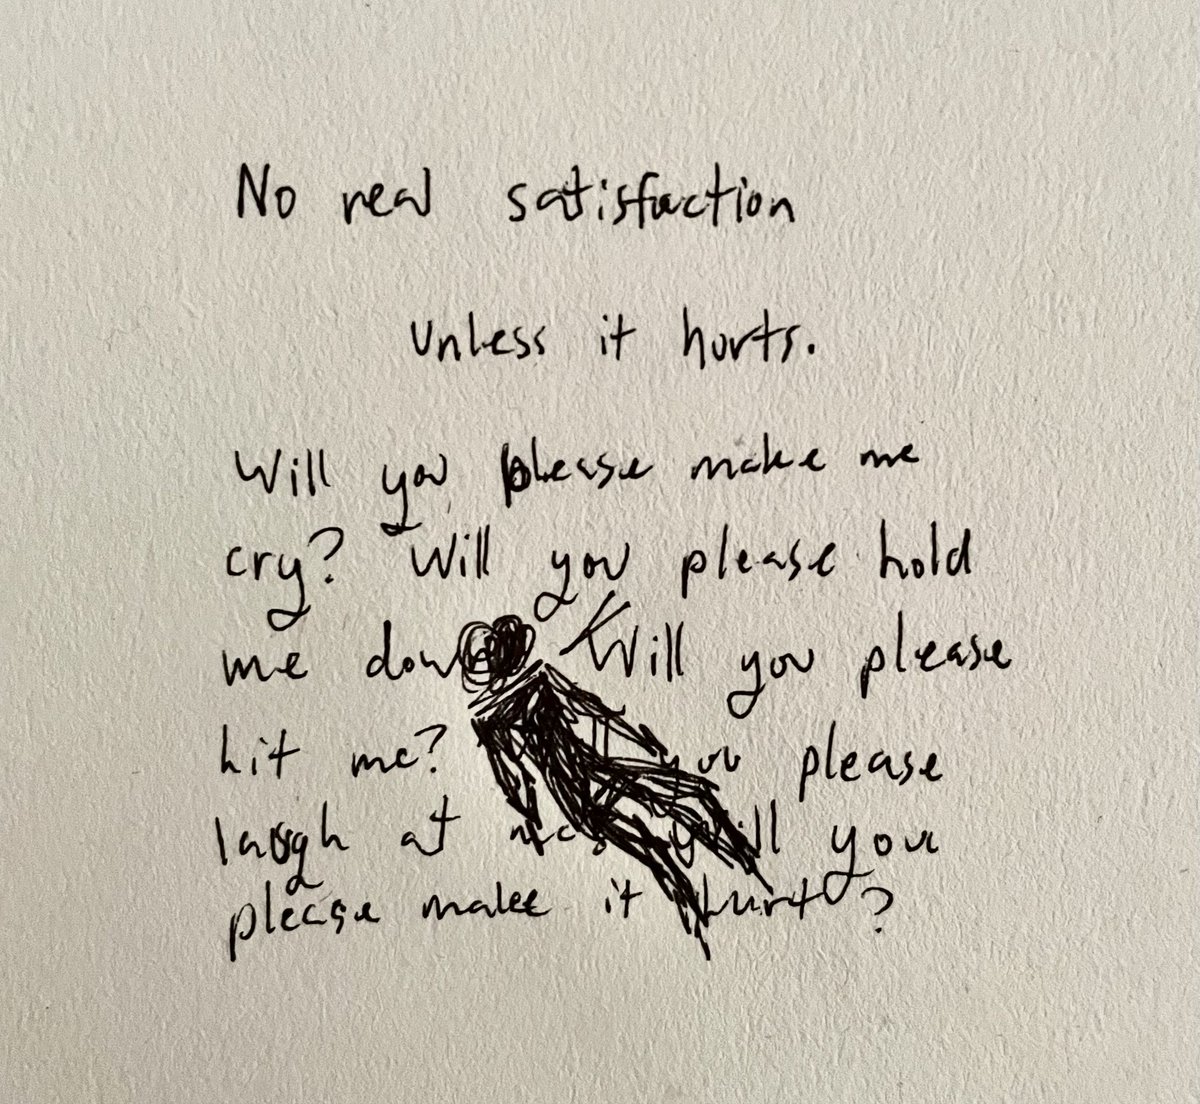 No real satisfaction
Unless it hurts.
Will you please make me
cry? Will you please hold
me down Will you please
hit me? you please
laugh at me? Will you
please make it hurt?